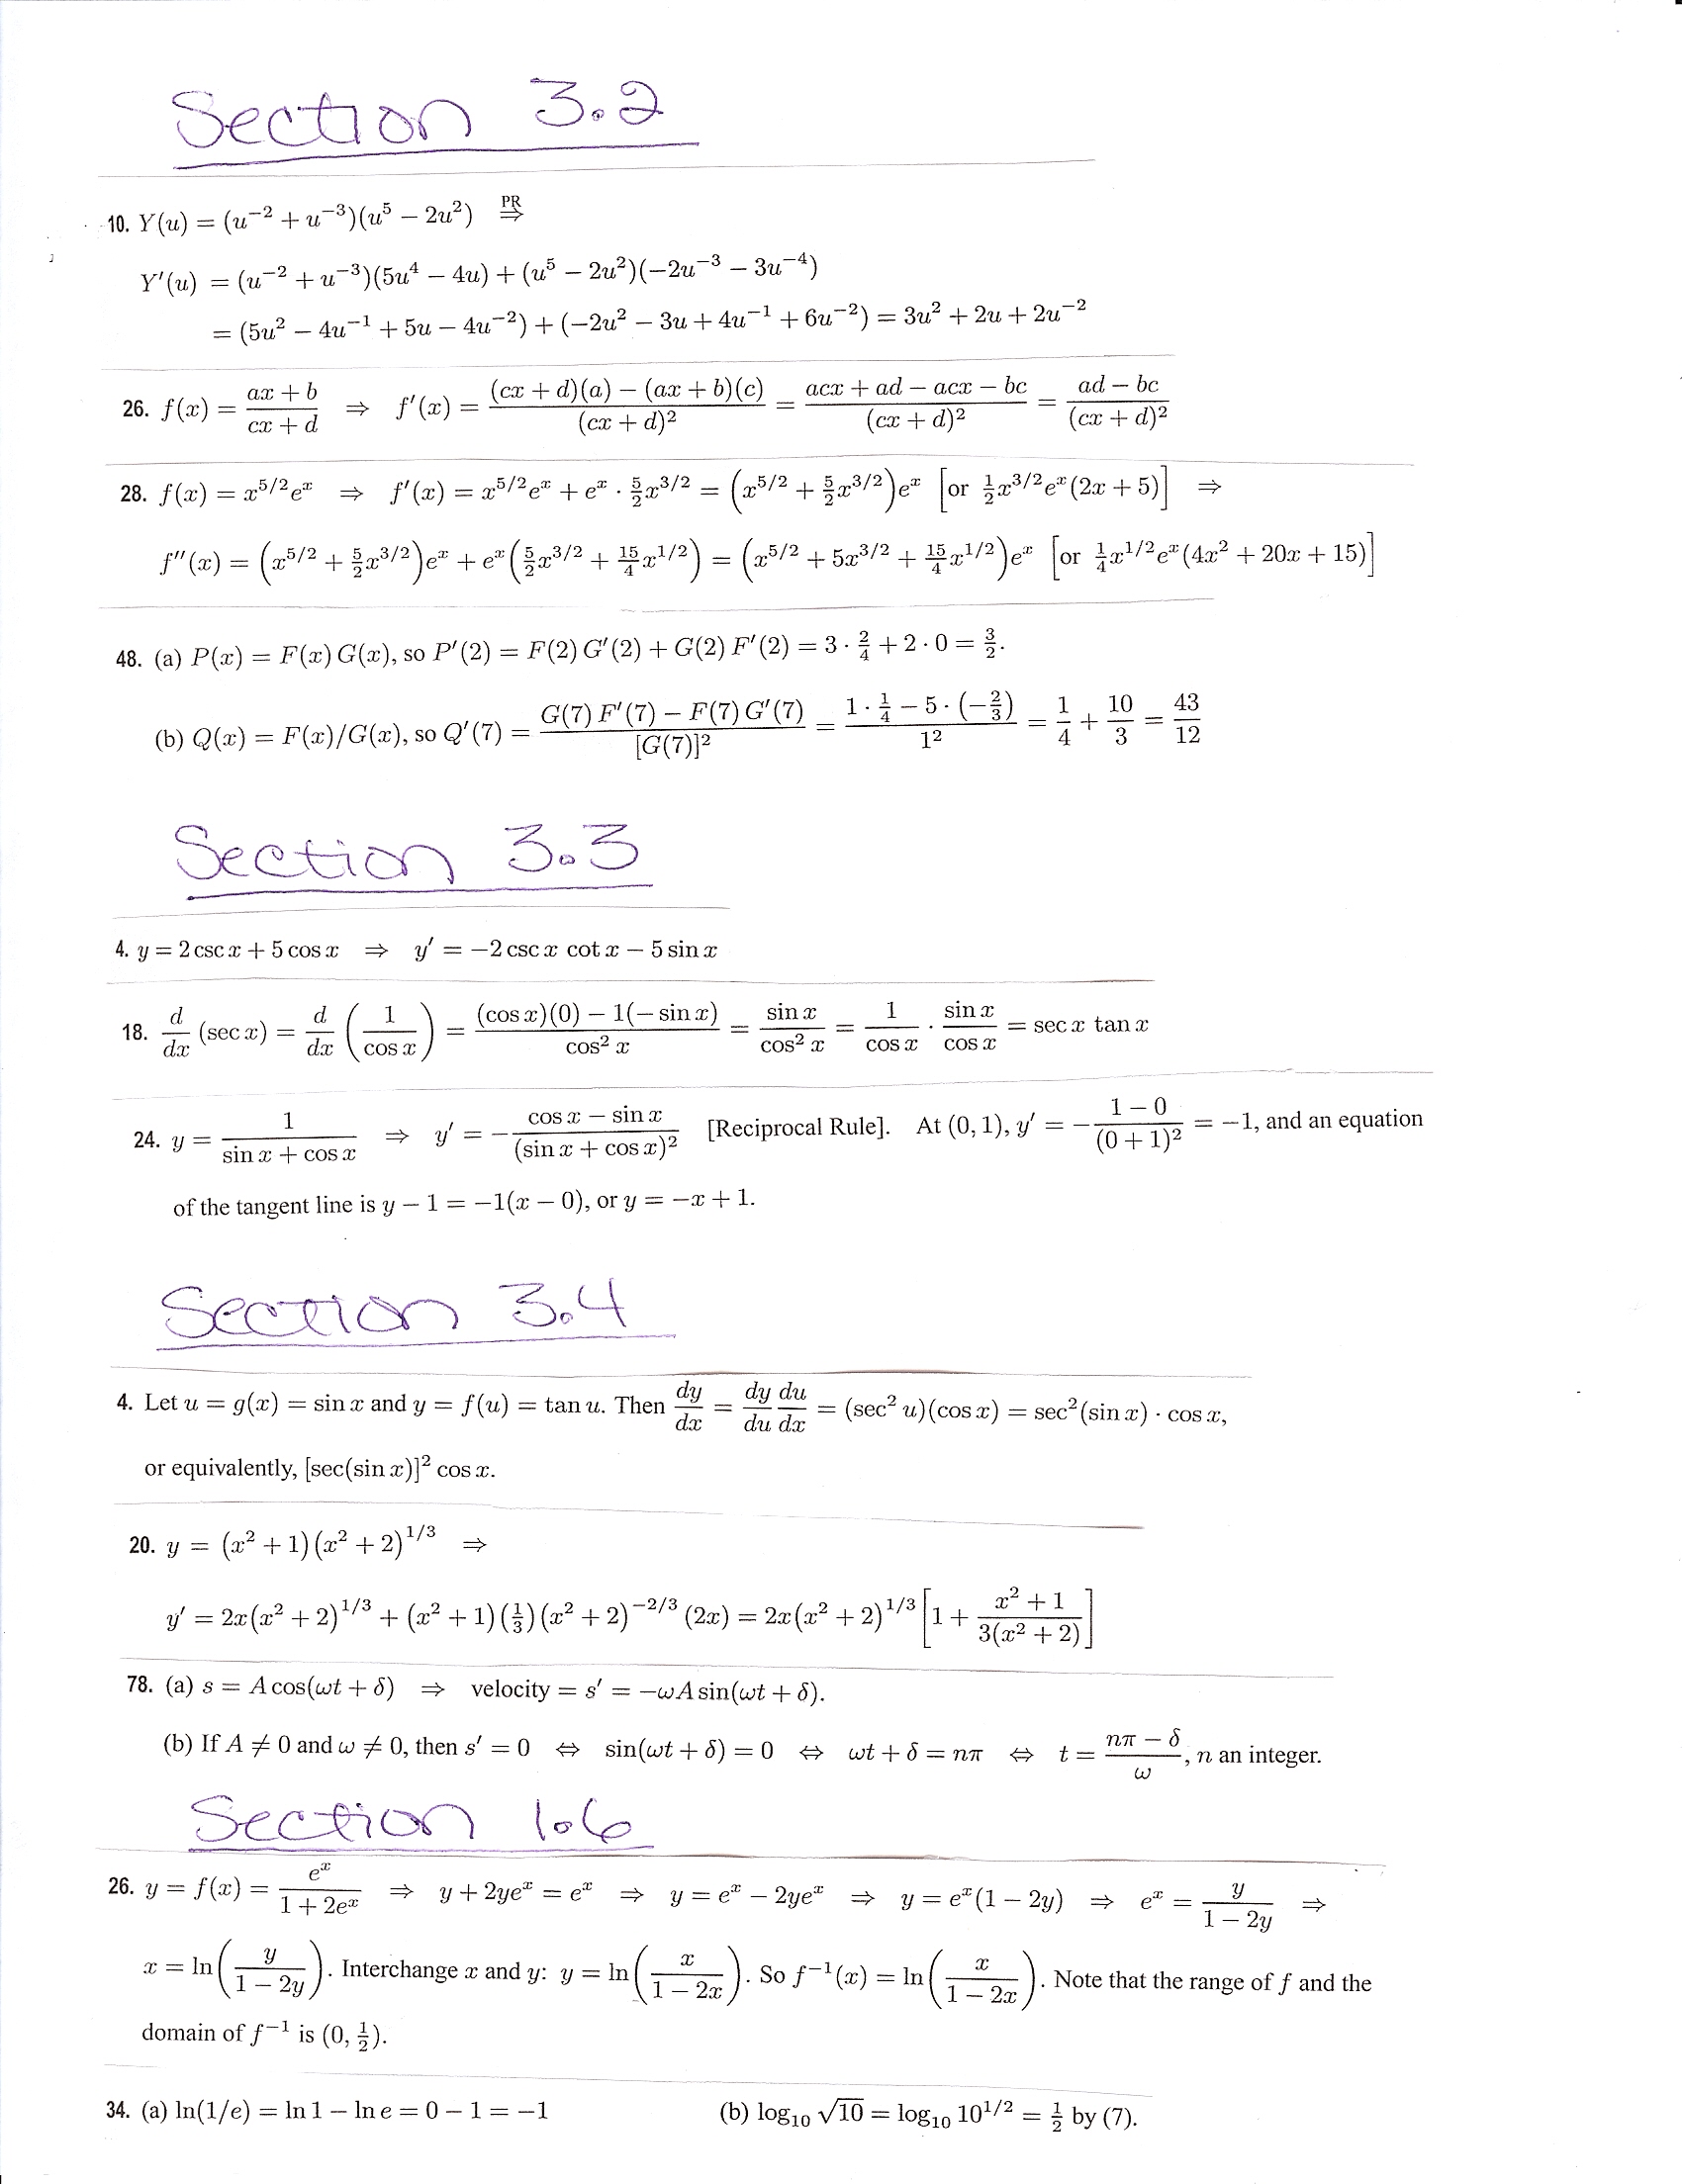 Section 3.2
10. Y(u) = (u⁻² + u⁻³)(u⁵ − 2u²) PR ⇒
Y′(u) = (u⁻² + u⁻³)(5u⁴ − 4u) + (u⁵ − 2u²)(−2u⁻³ − 3u⁻⁴)
= (5u² − 4u⁻¹ + 5u − 4u⁻²) + (−2u² − 3u + 4u⁻¹ + 6u⁻²) = 3u² + 2u + 2u⁻²
26. f(x) = (ax + b)/(cx + d) ⇒ f′(x) = ((cx + d)(a) − (ax + b)(c))/(cx + d)² = (acx + ad − acx − bc)/(cx + d)² = (ad − bc)/(cx + d)²
28. f(x) = x^(5/2)eˣ ⇒ f′(x) = x^(5/2)eˣ + eˣ · 5/2 x^(3/2) = (x^(5/2) + 5/2 x^(3/2))eˣ [or 1/2 x^(3/2)eˣ(2x + 5)] ⇒
f″(x) = (x^(5/2) + 5/2 x^(3/2))eˣ + eˣ(5/2 x^(3/2) + 15/4 x^(1/2)) = (x^(5/2) + 5x^(3/2) + 15/4 x^(1/2))eˣ [or 1/4 x^(1/2)eˣ(4x² + 20x + 15)]
48. (a) P(x) = F(x) G(x), so P′(2) = F(2) G′(2) + G(2) F′(2) = 3 · 2/4 + 2 · 0 = 3/2.
(b) Q(x) = F(x)/G(x), so Q′(7) = (G(7) F′(7) − F(7) G′(7))/[G(7)]² = (1 · 1/4 − 5 · (−2/3))/1² = 1/4 + 10/3 = 43/12
Section 3.3
4. y = 2 csc x + 5 cos x ⇒ y′ = −2 csc x cot x − 5 sin x
18. d/dx (sec x) = d/dx (1/cos x) = ((cos x)(0) − 1(− sin x))/cos² x = sin x/cos² x = 1/cos x · sin x/cos x = sec x tan x
24. y = 1/(sin x + cos x) ⇒ y′ = −(cos x − sin x)/(sin x + cos x)² [Reciprocal Rule]. At (0, 1), y′ = −(1 − 0)/(0 + 1)² = −1, and an equation
of the tangent line is y − 1 = −1(x − 0), or y = −x + 1.
Section 3.4
4. Let u = g(x) = sin x and y = f(u) = tan u. Then dy/dx = dy/du du/dx = (sec² u)(cos x) = sec²(sin x) · cos x,
or equivalently, [sec(sin x)]² cos x.
20. y = (x² + 1)(x² + 2)^(1/3) ⇒
y′ = 2x(x² + 2)^(1/3) + (x² + 1)(1/3)(x² + 2)^(−2/3) (2x) = 2x(x² + 2)^(1/3) [1 + (x² + 1)/(3(x² + 2))]
78. (a) s = A cos(ωt + δ) ⇒ velocity = s′ = −ωA sin(ωt + δ).
(b) If A ≠ 0 and ω ≠ 0, then s′ = 0 ⇔ sin(ωt + δ) = 0 ⇔ ωt + δ = nπ ⇔ t = (nπ − δ)/ω, n an integer.
Section 1.6
26. y = f(x) = eˣ/(1 + 2eˣ) ⇒ y + 2yeˣ = eˣ ⇒ y = eˣ − 2yeˣ ⇒ y = eˣ(1 − 2y) ⇒ eˣ = y/(1 − 2y) ⇒
x = ln(y/(1 − 2y)). Interchange x and y: y = ln(x/(1 − 2x)). So f⁻¹(x) = ln(x/(1 − 2x)). Note that the range of f and the
domain of f⁻¹ is (0, 1/2).
34. (a) ln(1/e) = ln 1 − ln e = 0 − 1 = −1 (b) log₁₀ √10 = log₁₀ 10^(1/2) = 1/2 by (7).